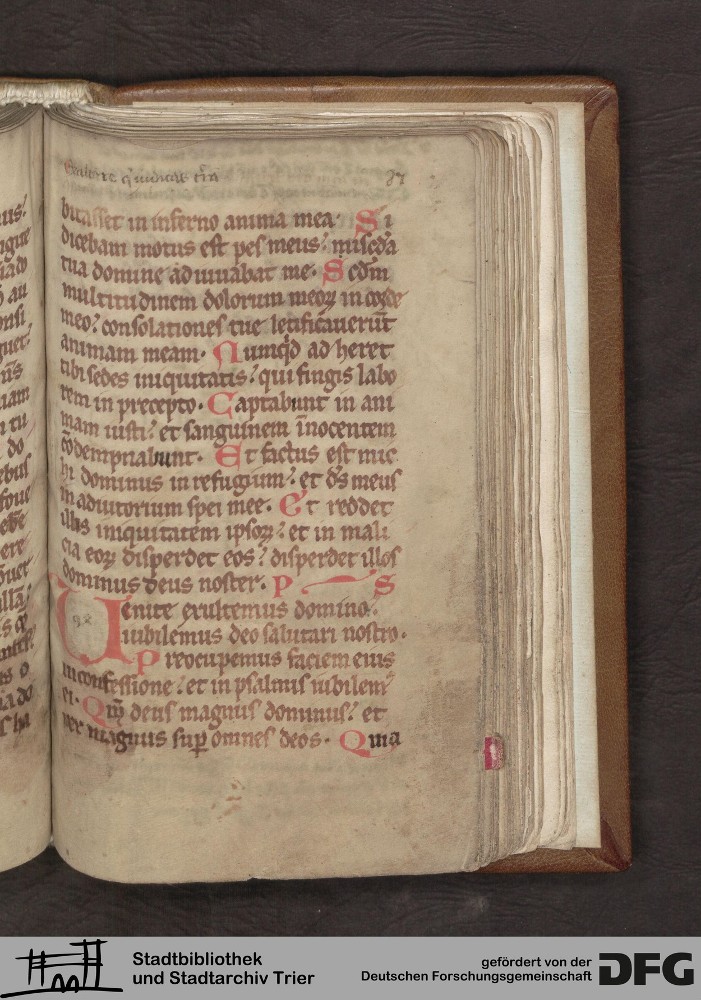 Exaltare q iudicas trā 37
bitasset in inferno anima mea. Si
dicebam motus est pes meus: misc̄dia
tua domine adiuuabat me. Scdm̄
multitudinem dolorum meoꝝ in corde
meo: consolationes tue letificauerūt
animam meam. Numq̇d adheret
tibi sedes iniquitatis: qui fingis labo
rem in precepto. Captabunt in ani
mam iusti: et sanguinem īnocentem
cōdempnabunt. Et factus est mic
hi dominus in refugium: et ds̄ meus
in adiutorium spei mee. Et reddet
illis iniquitatem ipsoꝝ: et in mali
cia eoꝝ disperdet eos: disperdet illos
dominus deus noster. P S
Uenite exultemus domino:
iubilemus deo salutari nostro.
Preocupemus faciem eius
in confessione: et in psalmis iubilem᷒
ei. Qm̄ deus magnus dominus: et
rex magnus sup̄ omnes deos. Quia
Stadtbibliothek
und Stadtarchiv Trier
gefördert von der
Deutschen Forschungsgemeinschaft DFG